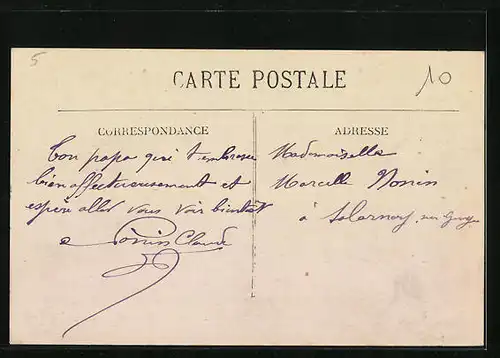 5
10
CARTE POSTALE
CORRESPONDANCE
Ton papa qui t'embrasse
bien affectueusement et
espère aller vous voir bientôt
Claude
ADRESSE
Mademoiselle
Marcelle Nonin
à Salornay sur Guye